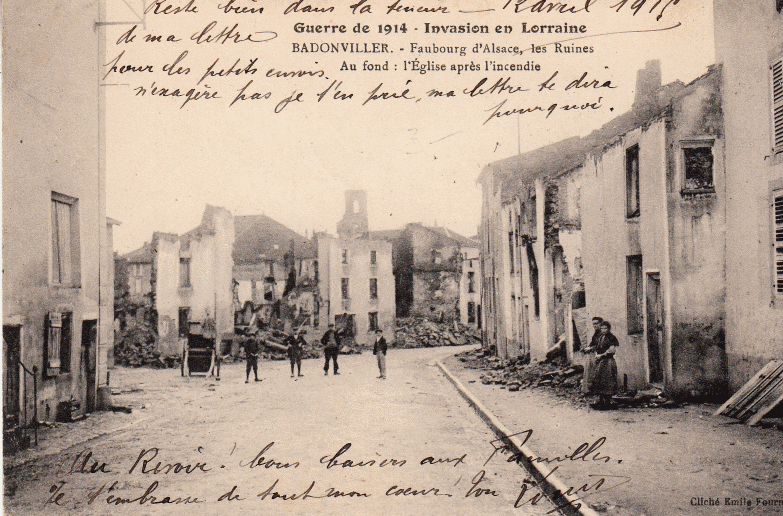 Reste bien dans la teneur — 12 avril 1915
de ma lettre
Guerre de 1914 - Invasion en Lorraine
BADONVILLER. - Faubourg d'Alsace, les Ruines
Au fond : l'Église après l'incendie
pour les petits envois.
n'exagère pas je t'en prie, ma lettre te dira
pourquoi.
Au Revoir! bons baisers aux Familles.
Je t'embrasse de tout mon coeur! Ton
Cliché Emile Fourn